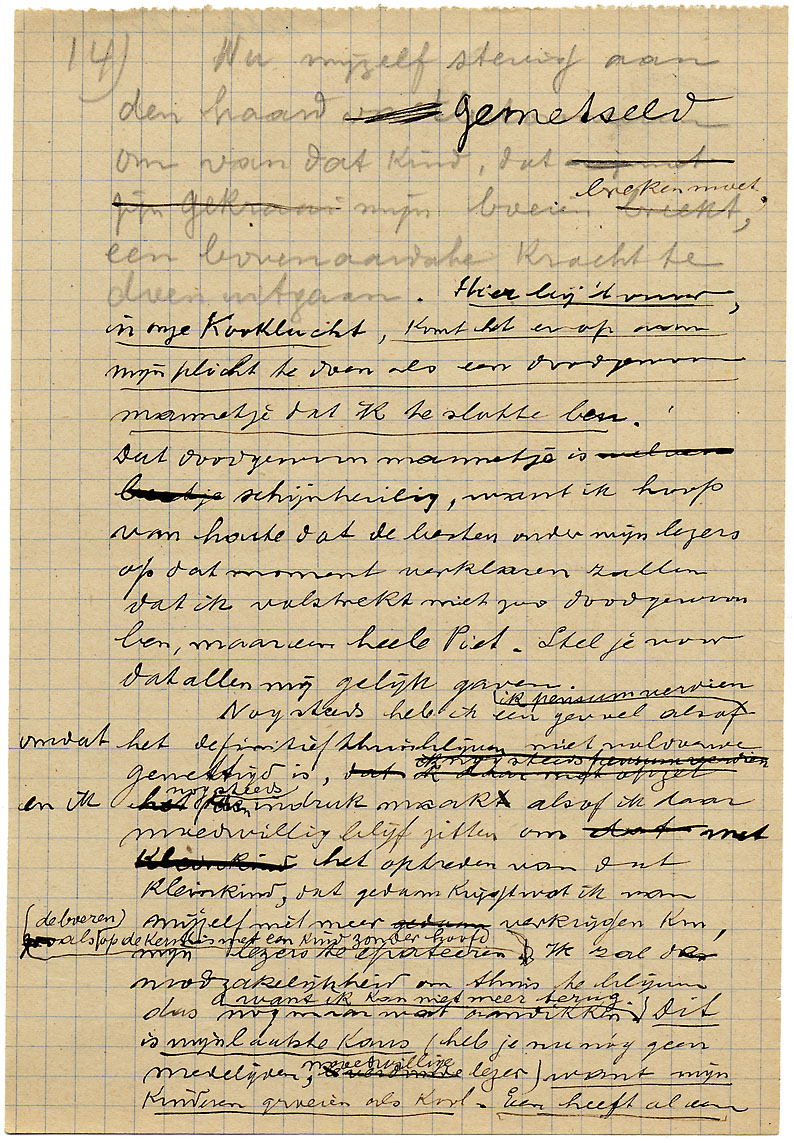 14) Nu mijzelf stevig aan
den haard gemetseld
om van dat kind, dat
breken moet
zijn gekraai mijn boeien breekt,
een bovenaardsche kracht te
doen uitgaan. Hier bij 't vuur,
in onze kooklucht, komt het er op aan
mijn plicht te doen als een doodgewoon
mannetje dat ik te slotte ben.
Dat doodgewoon mannetje is
beetje schijnheilig, want ik hoop
van harte dat de besten onder mijn lezers
op dat moment verklaren zullen
dat ik volstrekt niet zoo doodgewoon
ben, maar een heele Piet. Stel je voor
dat allen mij gelijk gaven.
ik pensum verdien
Nog steeds heb ik een gevoel alsof
omdat het definitief thuisblijven niet voldoende
ik nog steeds pensum verdien
gemotiveerd is, dat ik daar met opzet
nog steeds
en ik het den indruk maak alsof ik daar
moedwillig blijf zitten om dat met
Kleinkind het optreden van dat
kleinkind, dat gedaan krijgt wat ik van
(de boeren) mijzelf niet meer gedaan verkrijgen kon,
als op de kermis met een kind zonder hoofd
mijn lezers te epateeren. Ik zal de
noodzakelijkheid om thuis te blijven
want ik kan niet meer terug
dus nog maar wat aandikken. Dit
is mijn laatste kans (heb je nu nog geen
moedwillige
medelijden, lezer) want mijn
kinderen groeien als kool. Een heeft al een